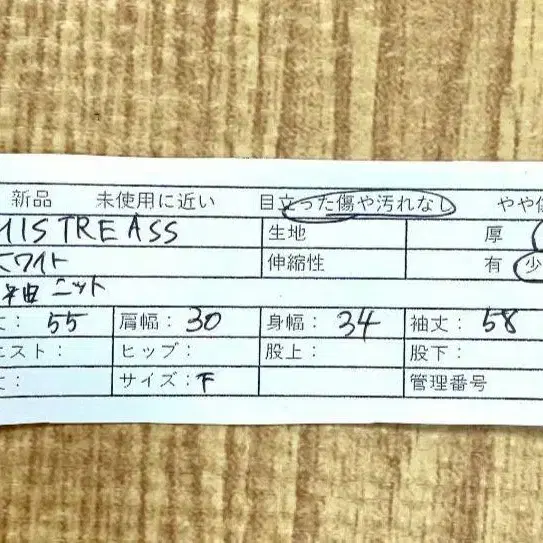 新品 未使用に近い 目立った傷や汚れなし やや傷
MISTREASS 生地 厚
ホワイト 伸縮性 有 少
長袖 ニット
丈： 55 肩幅： 30 身幅： 34 袖丈： 58
エスト： ヒップ： 股上： 股下：
丈： サイズ：F 管理番号